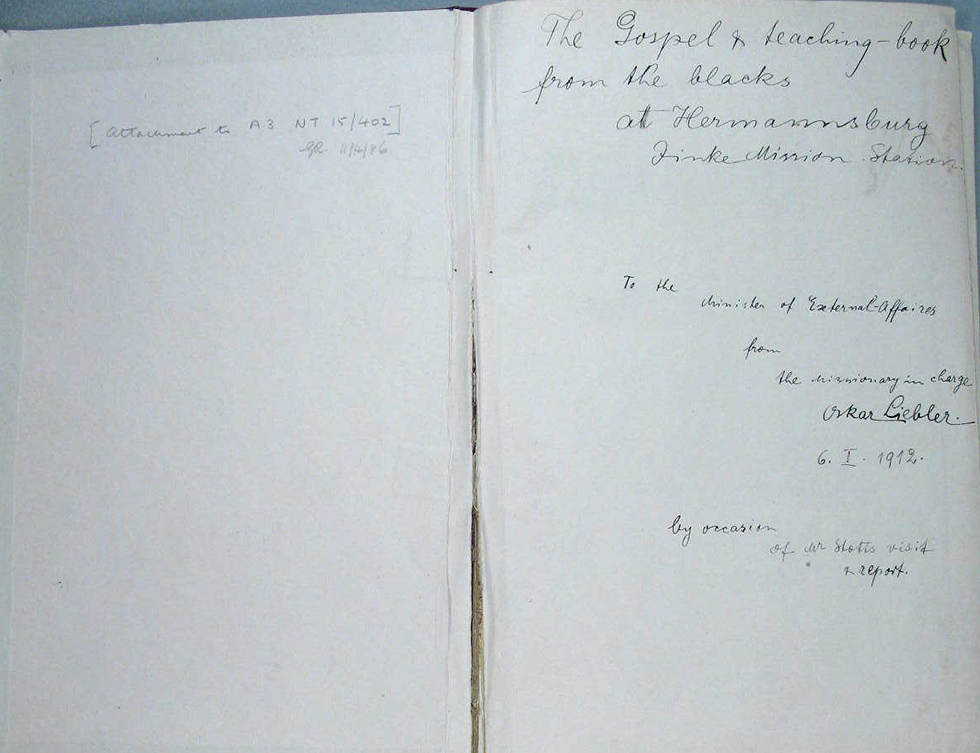 [Attachment to A3 NT 15/402]
GR. 11/4/86
The Gospel & teaching-book
from the blacks
at Hermannsburg
Finke Mission Station.
To the
Minister of External-Affaires
from
the Missionary in charge
Oskar Liebler.
6. I. 1912.
by occasion
of Mr Stotts visit
& report.